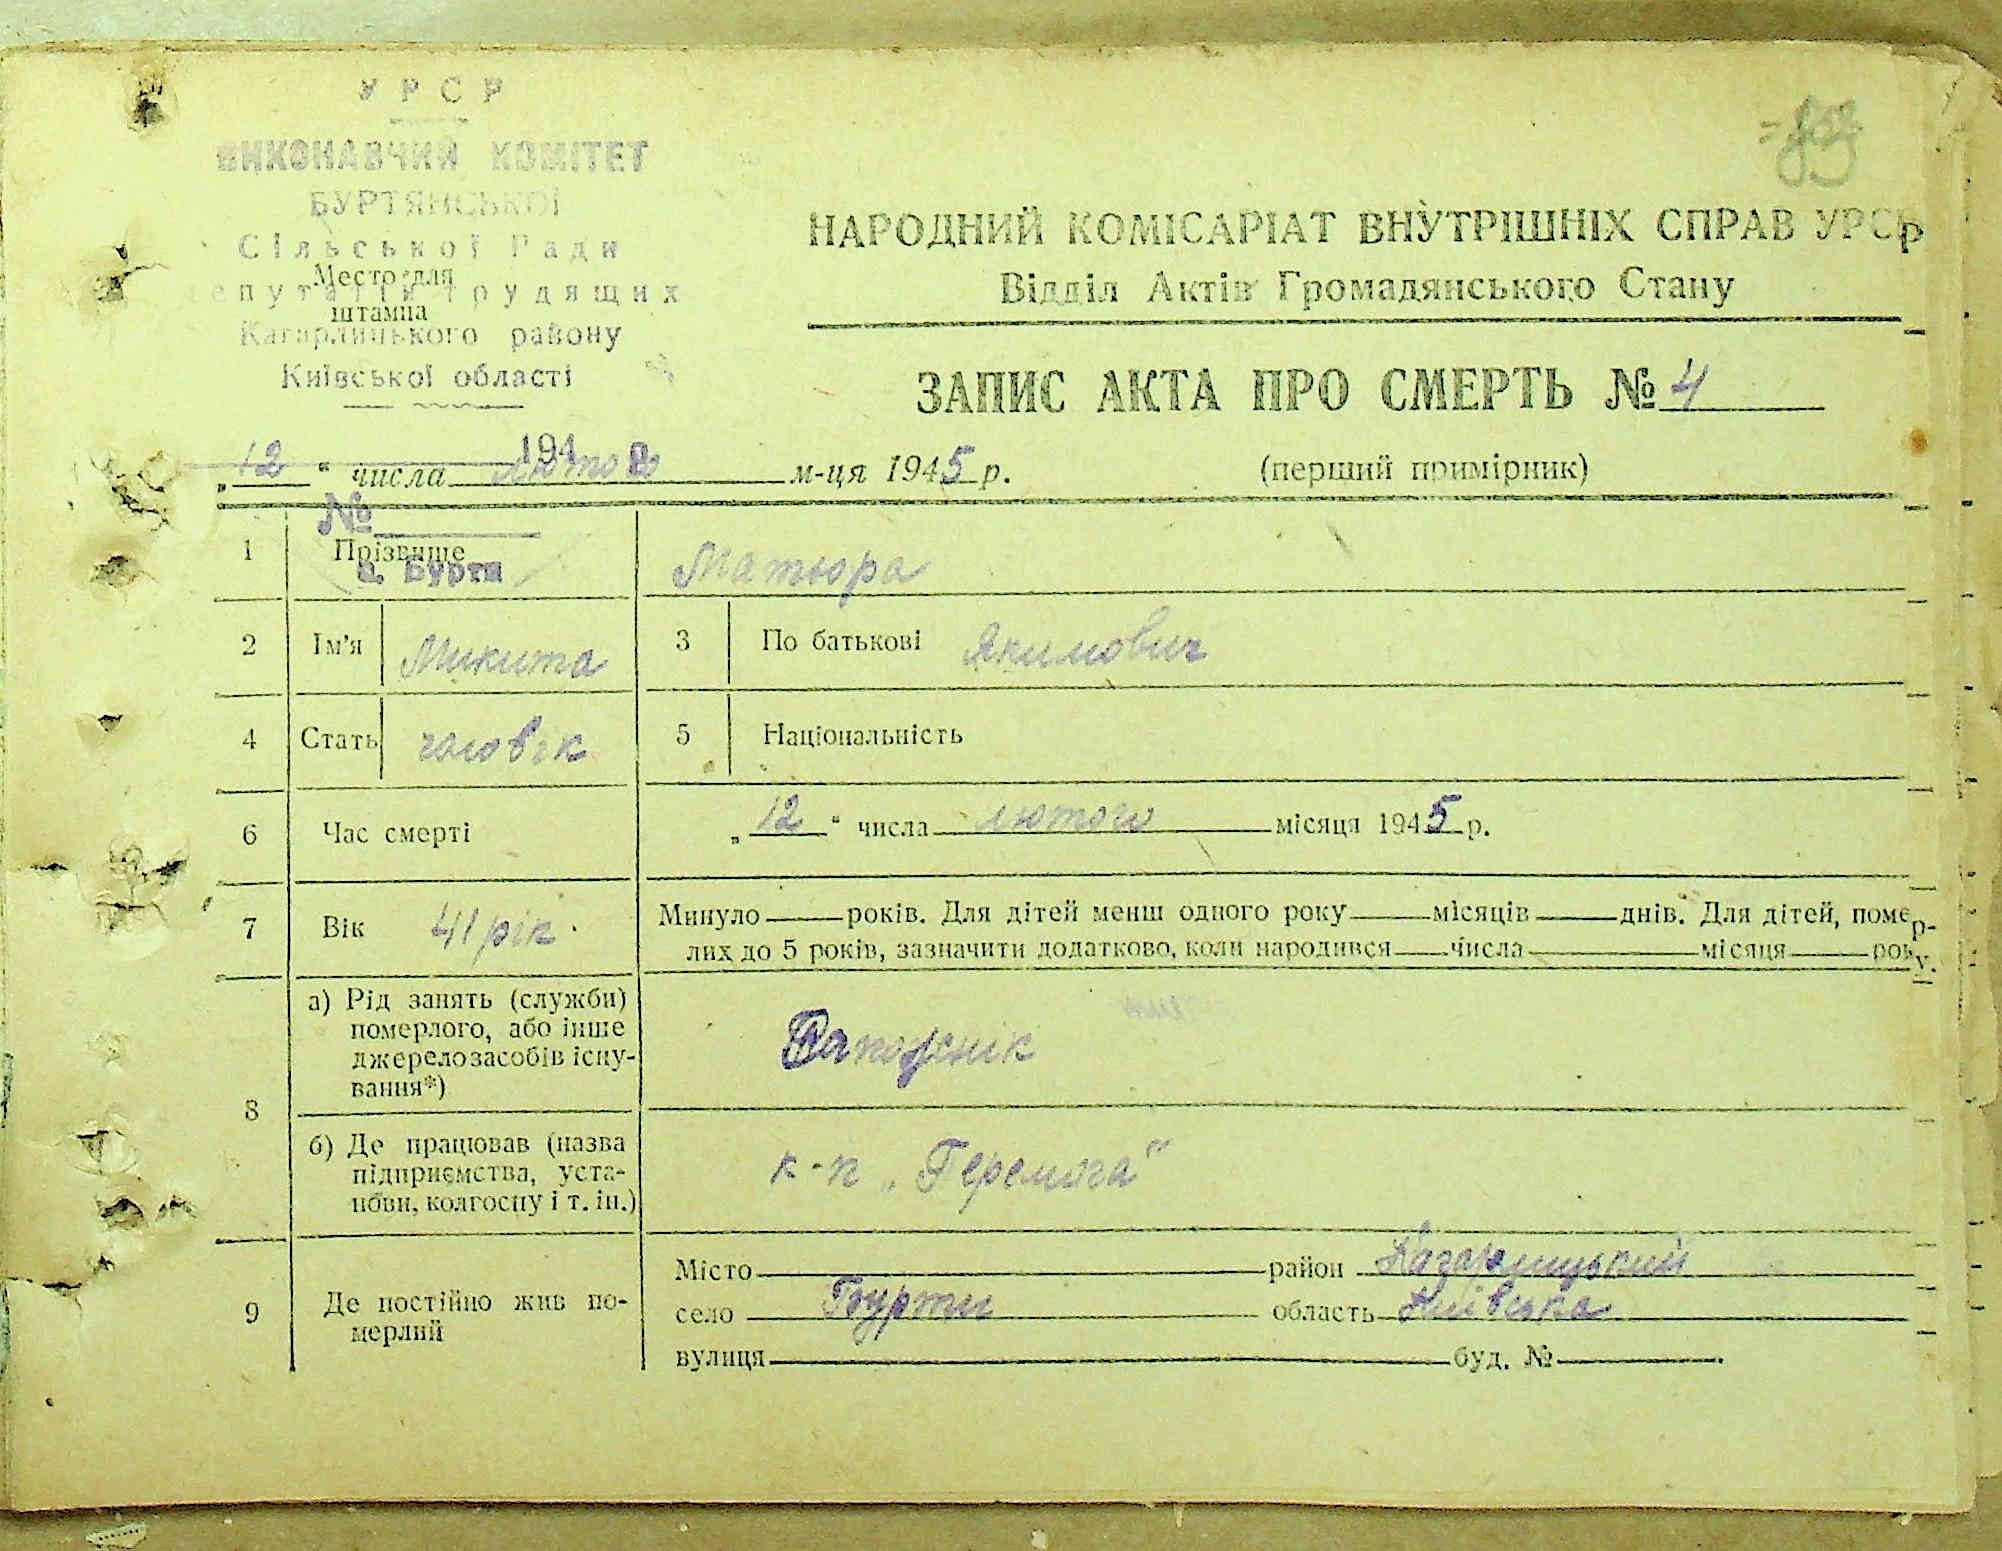 УРСР
ВИКОНАВЧИЙ КОМІТЕТ
БУРТЯНСЬКОЇ
Сільської Ради
депутатів трудящих
Место для
штампа
Кагарлицького району
Київської області
194 р
№
с. Бурти
НАРОДНИЙ КОМІСАРІАТ ВНУТРІШНІХ СПРАВ УРСР
Відділ Актів Громадянського Стану
ЗАПИС АКТА ПРО СМЕРТЬ № 4
„12“ числа лютого м-ця 1945 р.
(перший примірник)
1 Прізвище Матюра
2 Ім'я Микита 3 По батькові Якимович
4 Стать чоловік 5 Національність
6 Час смерті „12“ числа лютого місяця 1945 р.
7 Вік 41 рік Минуло років. Для дітей менш одного року місяців днів. Для дітей, помер-
лих до 5 років, зазначити додатково, коли народився числа місяця року.
8 а) Рід занять (служби)
померлого, або інше
джерело засобів існу-
вання*)
б) Де працював (назва
підприємства, уста-
нови, колгоспу і т. ін.)
к-п „Перемога"
9 Де постійно жив по-
мерлий
Місто район Кагарлицький
село Бурти область Київська
вулиця буд. №